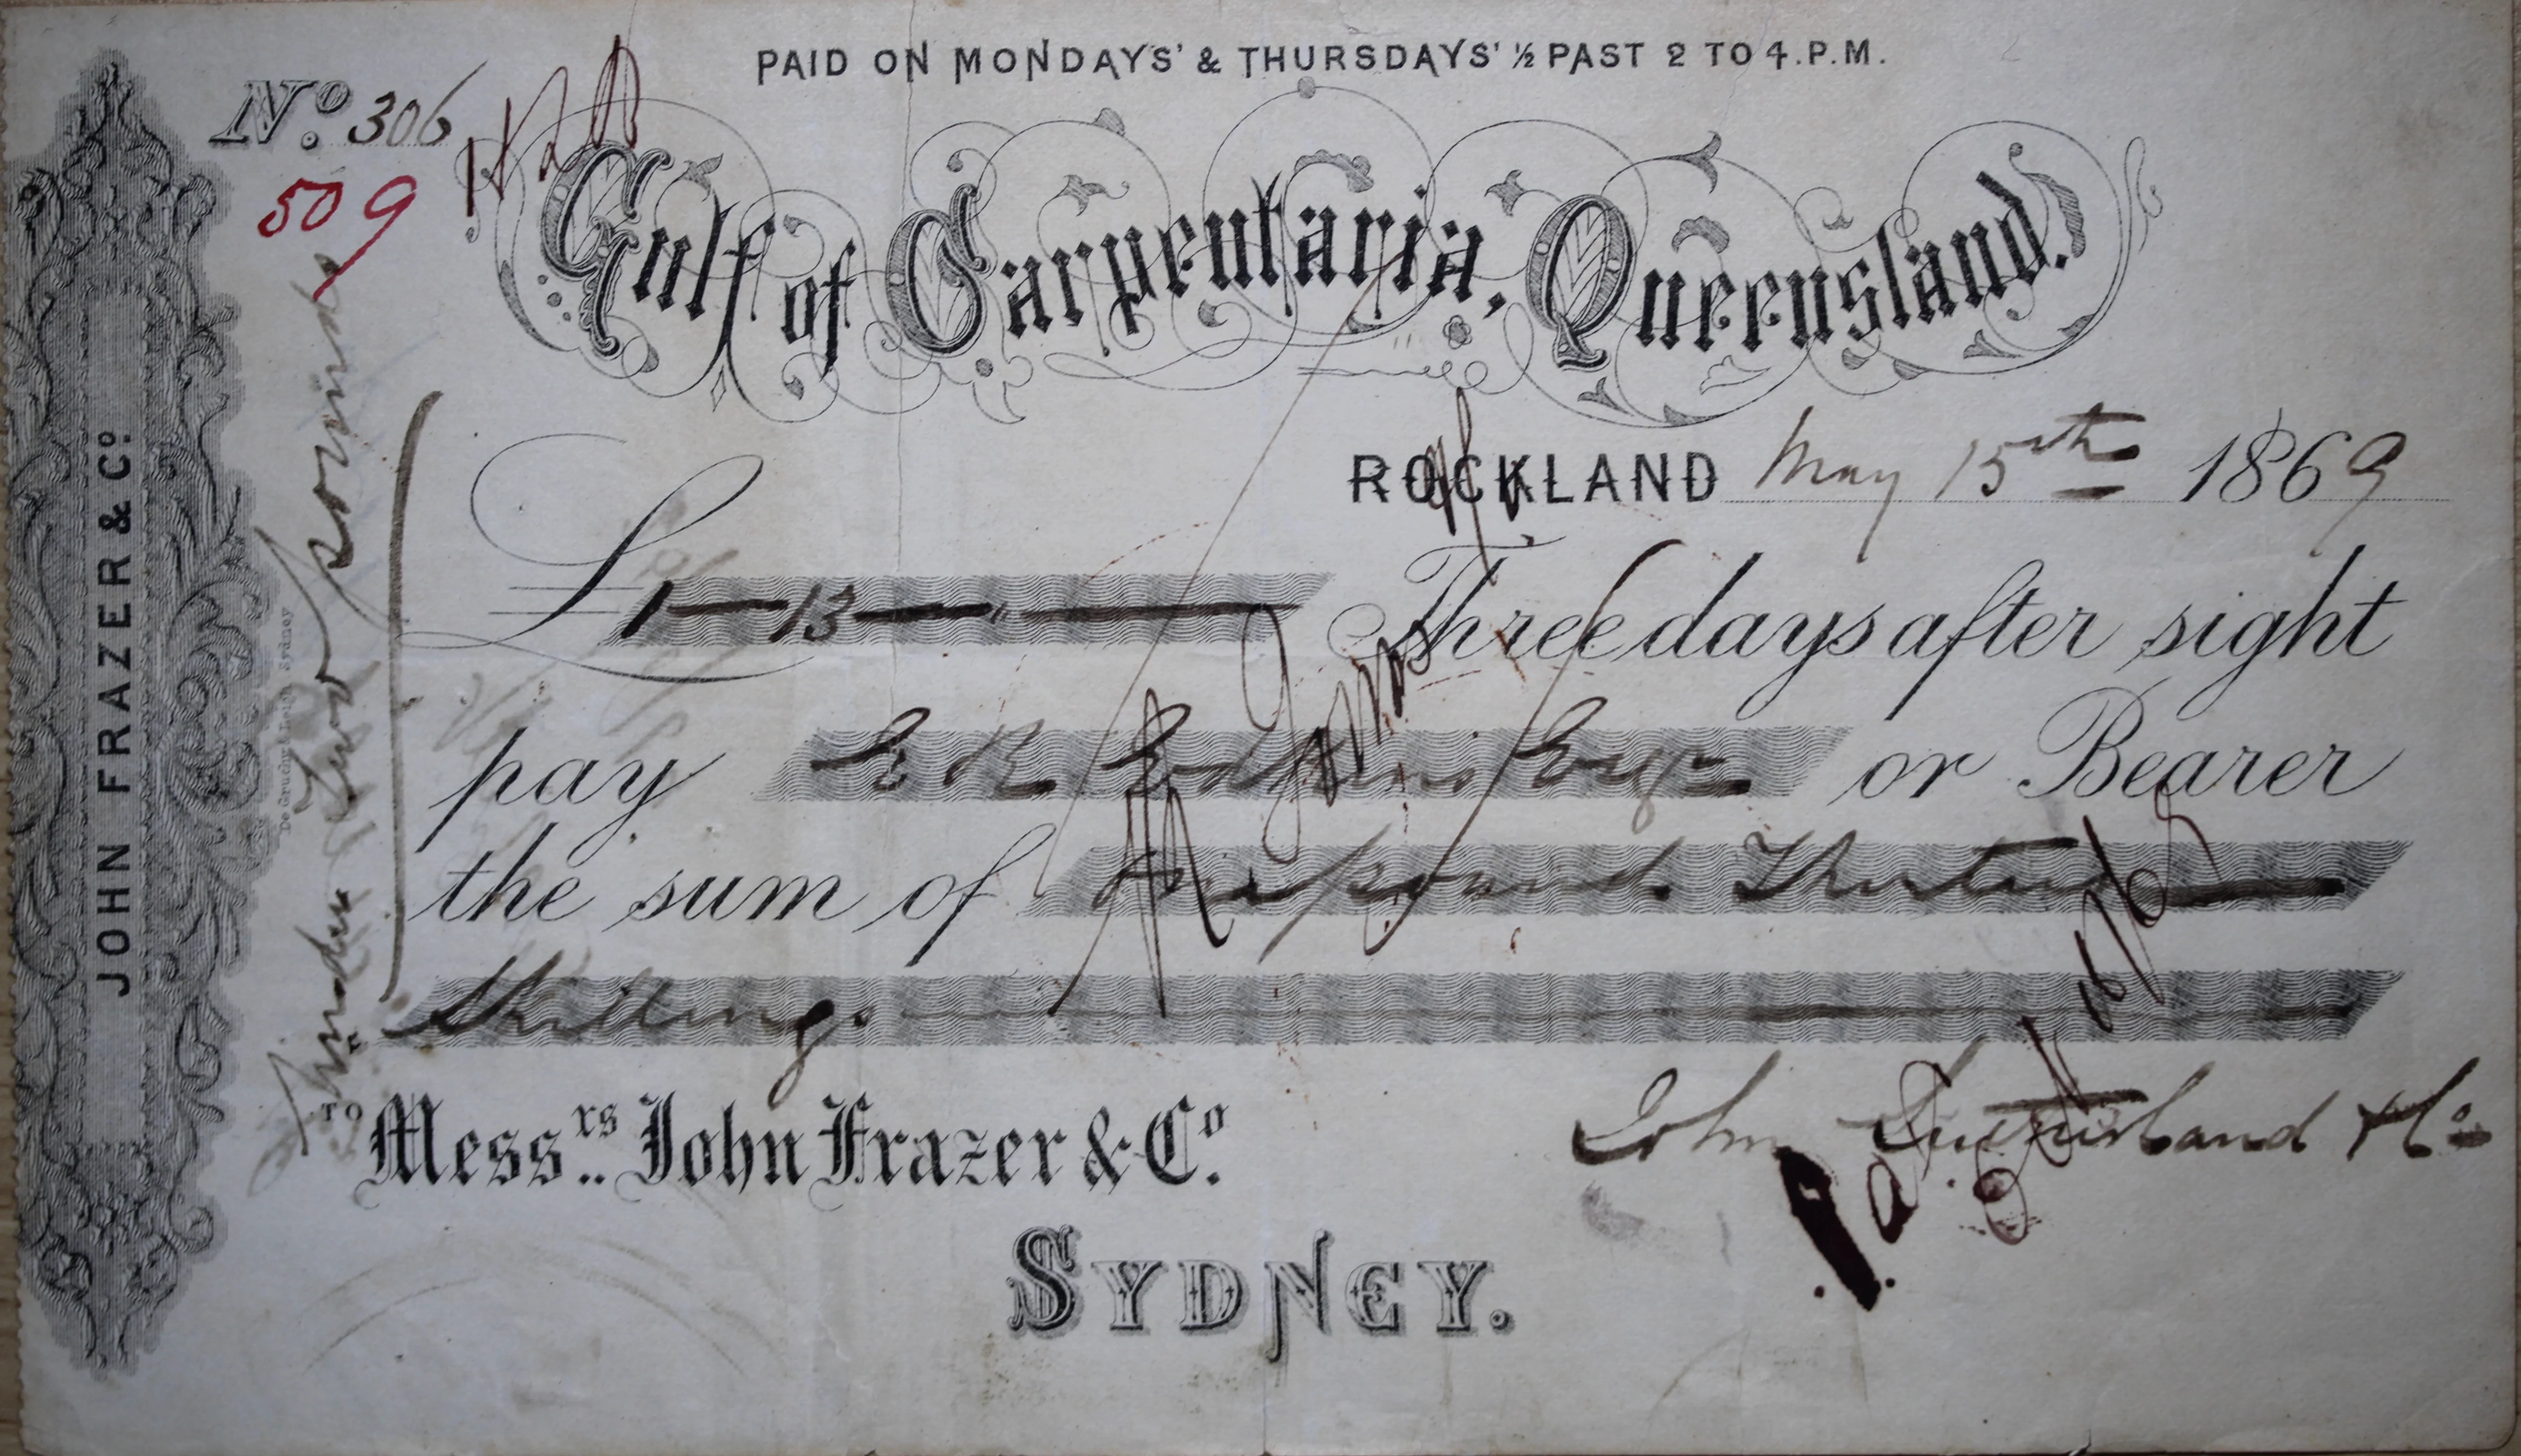 PAID ON MONDAYS' & THURSDAYS' ½ PAST 2 TO 4.P.M.
No. 306
509
Gulf of Carpentaria, Queensland.
ROCKLAND May 15th 1869
£ 1 — 13 — " — Three days after sight
pay E R Edkins Esqr or Bearer
the sum of One pound Thirteen
Shillings
TO
Messrs. John Frazer & Co.
SYDNEY.
John Sutherland & Co
JOHN FRAZER & Co.
De Gruchy & Leigh Sydney
Under Two pounds